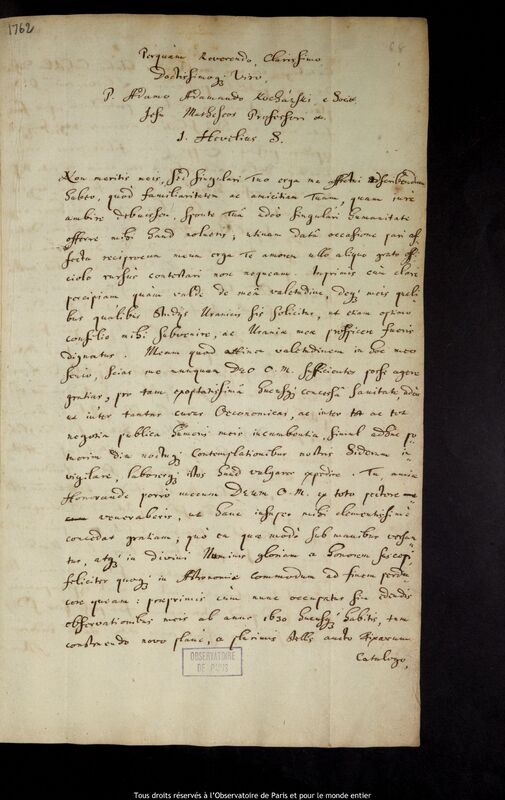 1762
68
Perquàm Reverendo, Clarissimo
Doctissimoq; Viro
P. Adamo Adamando Kochánski e Soc.
Jesu Matheseos Professori
J. Hevelius S.
Non meritis meis, sed singulari Tuo erga me affectui adscribendum
habeo, quod familiaritatem ac amicitiam Tuam, quam jure
ambire debuissem, sponte Tuâ adeò singulari humanitate
offerre mihi haud nolueris; utinam datâ occasione pari af-
fectu reciprocum meum erga Te amorem ullo aliquo grato of-
ficiolo rursùs contestari non nequeam. Inprimis cùm clarè
percipiam quàm valdè de meâ valetudine, deq; meis quali-
bus qualibus Studijs Uranicis sis solicitus, ut etiam optimo
consilio mihi subvenire, ac Uraniæ meæ prospicere fueris
dignatus. Meam quod attinet valetudinem in hoc meo
senio, scias me nunquam DEO O. M. sufficientes posse agere
gratias, pro tam exoptatissimâ hucusq; concessâ sanitate, adeò
ut inter tantas curas Oeconomicas, ac inter tot ac tot
negotia publica humeris meis incumbentia, simul adhuc po-
tuerim diu noctuq; Contemplationibus nostris Siderum in-
vigilare, laboresq; istos haud vulgares expedire. Tu, amice
Honorande porrò mecum DEUM O. M. ex toto pectore
veneraberis, ut hanc insuper mihi clementissimè
concedat gratiam; quò ea quæ modò sub manibus versan-
tur, atq; in divini Numinis gloriam a honorem suscepi
feliciter quoq; in Astronomiæ commodum ad finem perdu-
cere queam: præprimis cum nunc occupatus sim edendis
observationibus meis ab anno 1630 hucusq; habitis, tum
construendo novo planè, a plurimis stellis aucto Fixarum
Catalogo,
OBSERVATOIRE
DE PARIS
Tous droits réservés à l'Observatoire de Paris et pour le monde entier